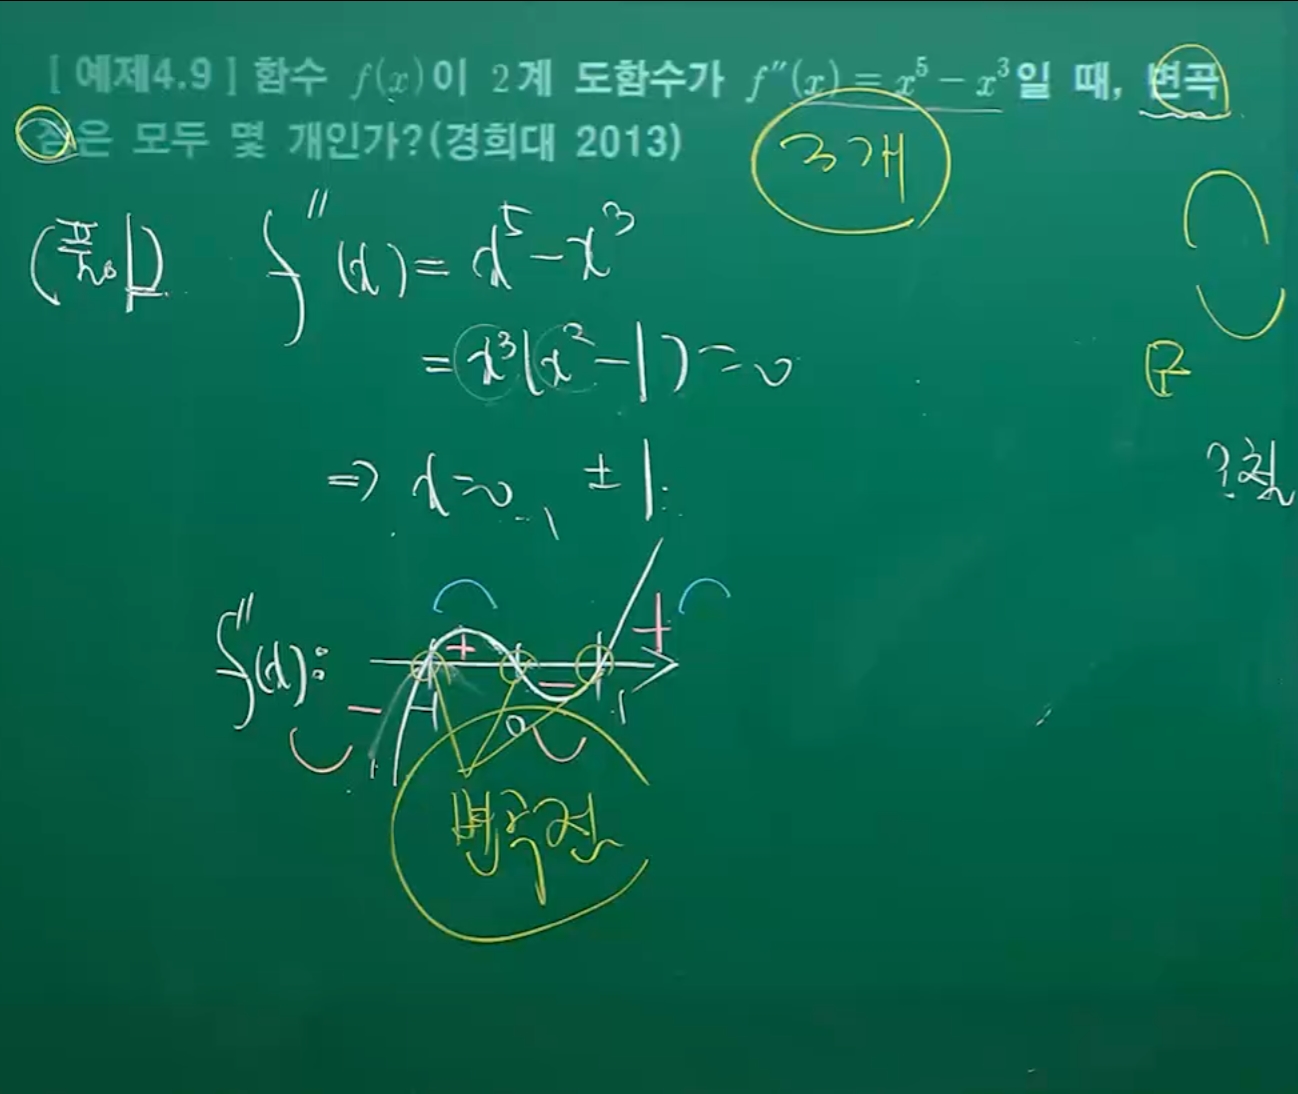 [ 예제4.9 ] 함수 f(x)이 2계 도함수가 f″(x) = x⁵ − x³일 때, 변곡
점은 모두 몇 개인가?(경희대 2013)
3개
(풀이) f″(x) = x⁵ − x³
= x³(x² − 1) = 0
⇒ x = 0, ± 1
f″(x) :
+ − + −
-1 0 1
변곡점